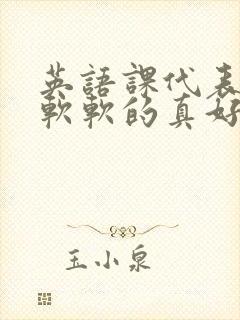 英語課代表
軟軟的真好
玉小泉